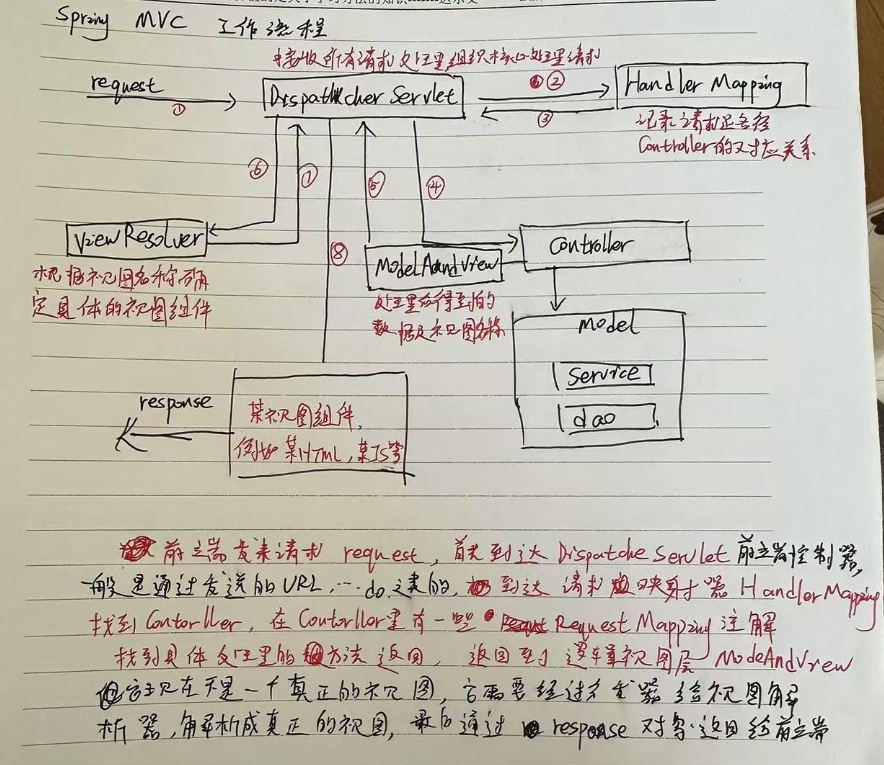 Spring MVC 工作流程
接收所有请求 处理组织核心处理请求
request
①
Dispatcher Servlet
②
③
Handler Mapping
记录请求
Controller的对应关系
⑥
①
⑤
④
⑧
ViewResolver
根据视图名称确
定具体的视图组件
ModelAandView
处理得到的
数据及视图名称
Controller
Model
Service
dao
response
某视图组件,
例如某HTML,某JS等
前端发来请求 request,首先到达 Dispatche Servlet 前端控制器,
一般是通过发送的URL,….do之类的,到达 请求映射器 HandlerMapping
找到Contorller,在Contorller里有一些 Request Mapping 注解
找到具体处理的方法 返回, 返回到 逻辑视图层 ModeAndView
但它现在不是一个真正的视图,它需要经过分发器 给视图解
析器,解析成真正的视图,最后通过 response 对象返回给前端